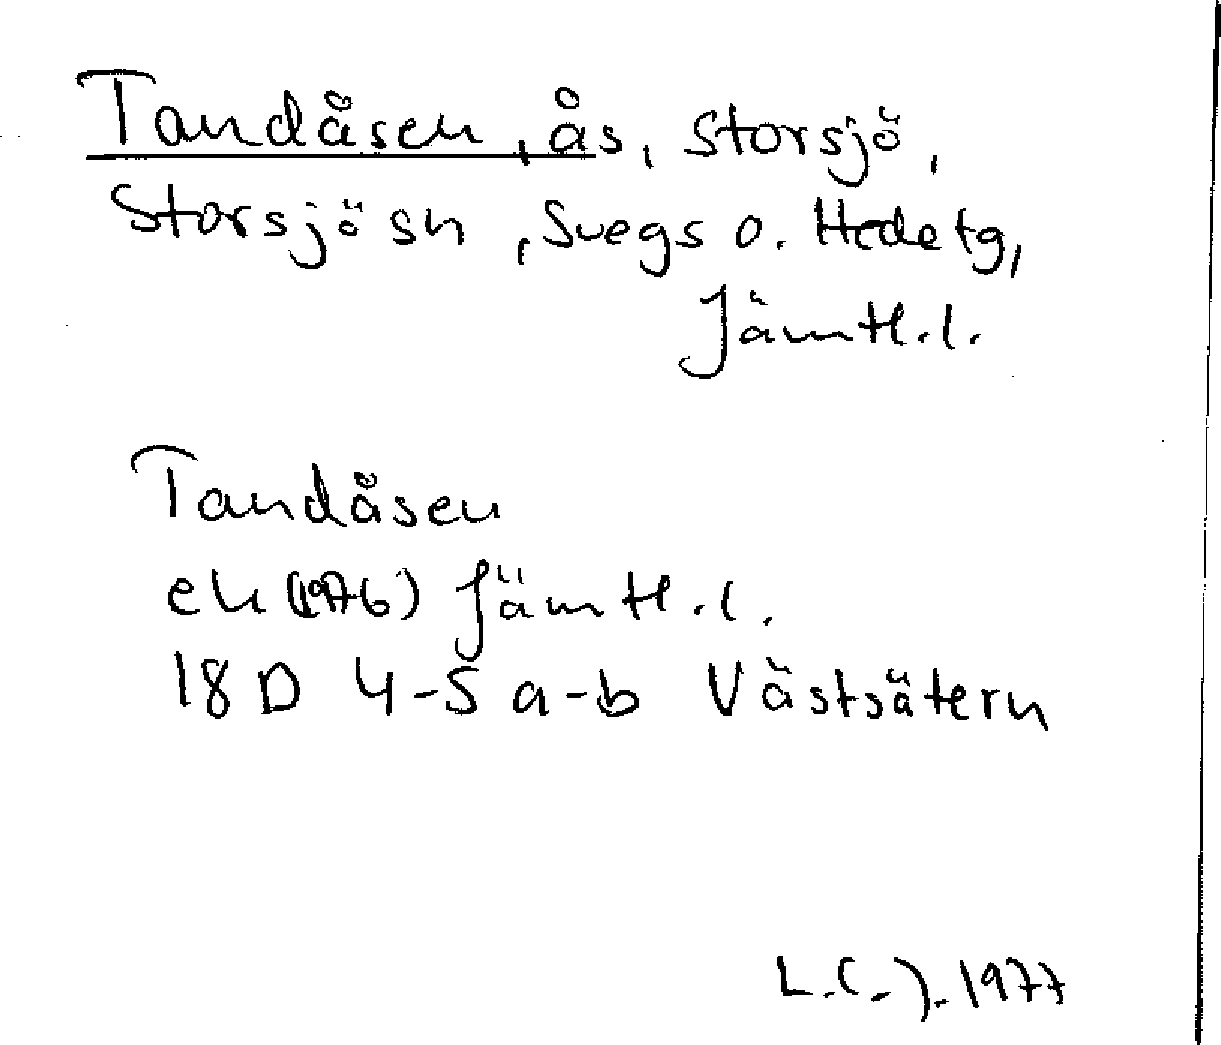 Tandåsen, ås, Storsjö,
Storsjö sn, Svegs o. Hede tg,
Jämtl.l.
Tandåsen
ek (1976) Jämtl.l.
18 D 4-5 a-b Västsätern
L.C-J. 1977